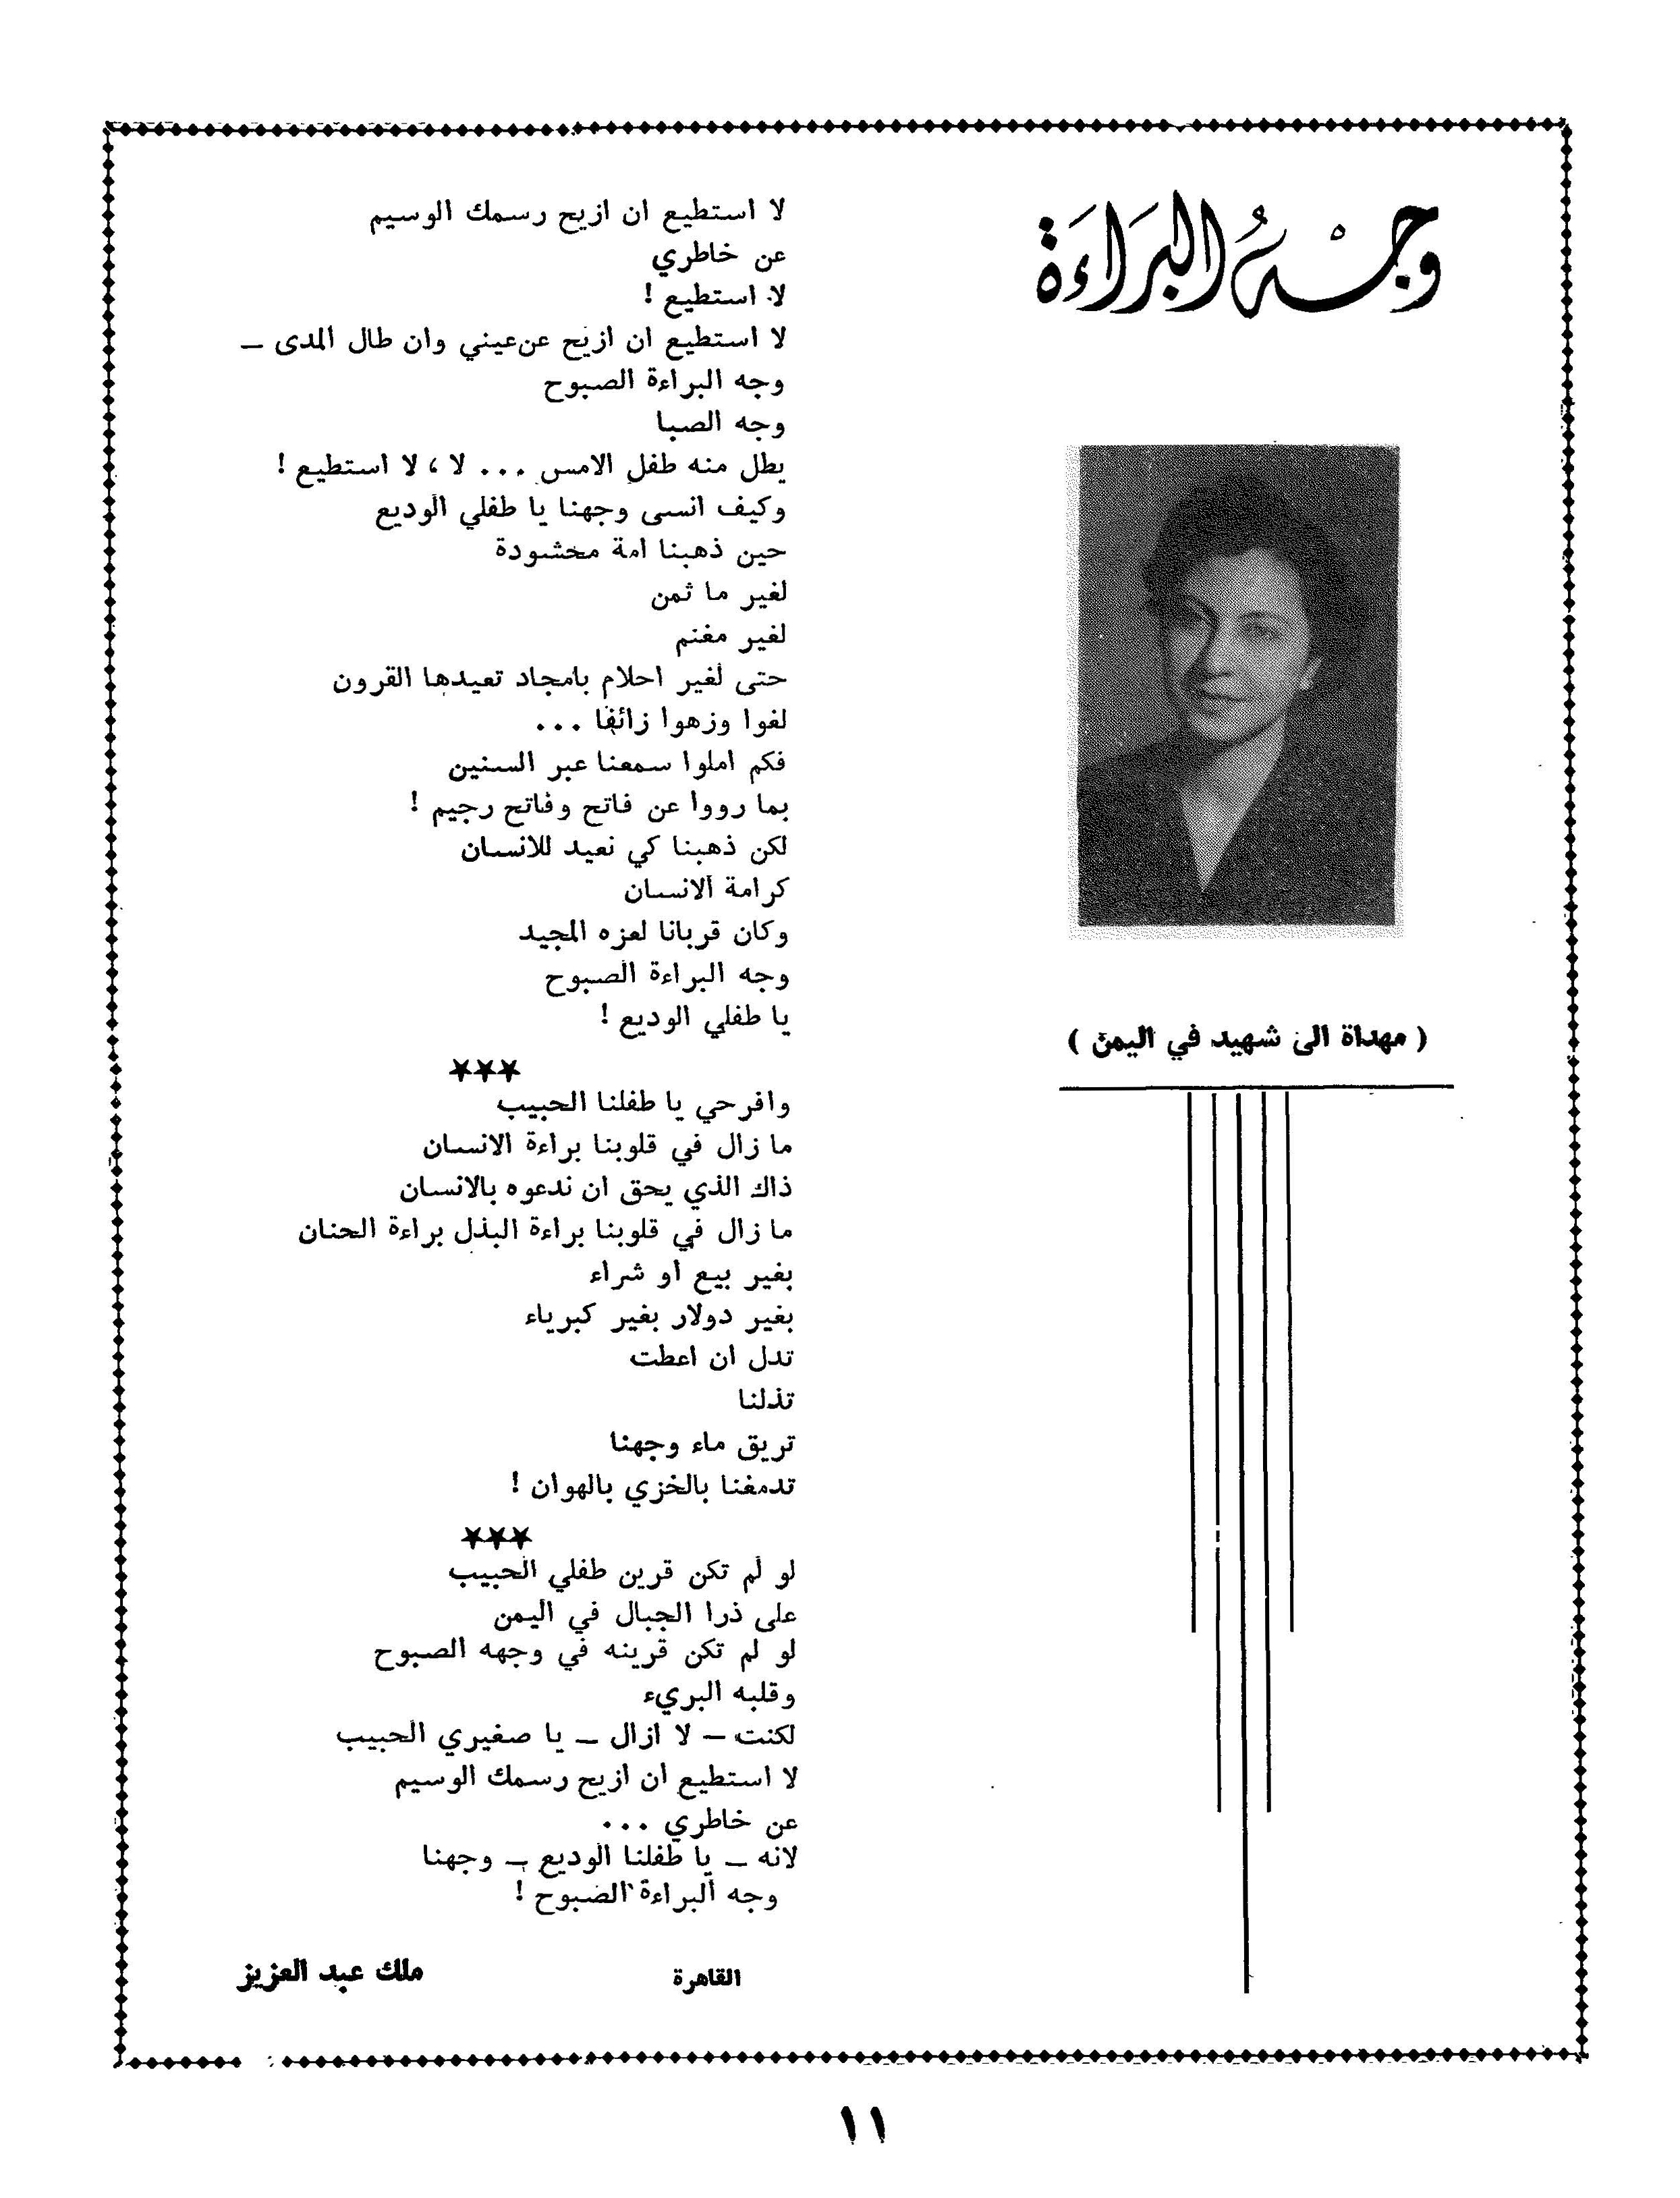 وجه البراءة
( مهداة الى شهيد في اليمن )
لا استطيع ان ازيح رسمك الوسيم
عن خاطري
لا استطيع !
لا استطيع ان ازيح عن عيني وان طال المدى –
وجه البراءة الصبوح
وجه الصبا
يطل منه طفل الامس ... لا ، لا استطيع !
وكيف انسى وجهنا يا طفلي الوديع
حين ذهبنا امة محشودة
لغير ما ثمن
لغير مغنم
حتى لغير احلام بامجاد تعيدها القرون
لغوا وزهوا زائفا ...
فكم املوا سمعنا عبر السنين
بما رووا عن فاتح وفاتح رجيم !
لكن ذهبنا كي نعيد للانسان
كرامة الانسان
وكان قربانا لعزه المجيد
وجه البراءة الصبوح
يا طفلي الوديع !
***
وافرحي يا طفلنا الحبيب
ما زال في قلوبنا براءة الانسان
ذاك الذي يحق ان ندعوه بالانسان
ما زال في قلوبنا براءة البذل براءة الحنان
بغير بيع او شراء
بغير دولار بغير كبرياء
تدل ان اعطت
تذلنا
تريق ماء وجهنا
تدمغنا بالخزي بالهوان !
***
لو لم تكن قرين طفلي الحبيب
على ذرا الجبال في اليمن
لو لم تكن قرينه في وجهه الصبوح
وقلبه البريء
لكنت – لا ازال – يا صغيري الحبيب
لا استطيع ان ازيح رسمك الوسيم
عن خاطري ...
لانه – يا طفلنا الوديع – وجهنا
وجه البراءة الصبوح !
القاهرة
ملك عبد العزيز
١١